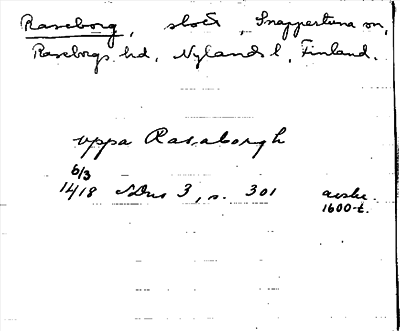 Raseborg, slott, Snappertuna sn,
Raseborgs hd, Nylands l, Finland.
uppa Rasaborgh
6/3
1418 SDns 3, s. 301 avskr.
1600-t.